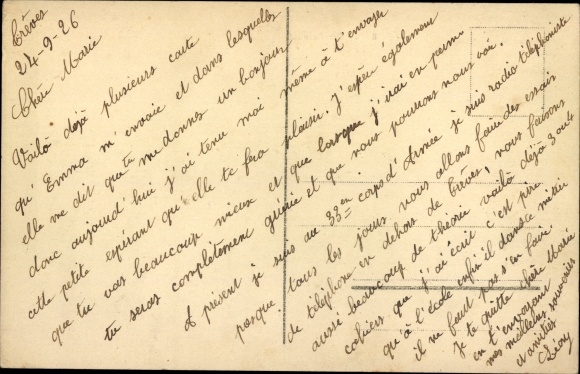 Trêves
24-9-26
Chère Marie
Voilà déjà plusieurs carte
qu'Emma m'envoie et dans lesquelles
elle me dit que tu me donnes un bonjour
donc aujourd'hui j'ai tenu moi même à t'envoyer
cette petite espérant qu'elle te fera plaisir. J'espère également
que tu vas beaucoup mieux et que lorsque j'irai en perm
tu seras complètement guérie et que nous pourrons nous voir.
A présent je suis au 33en corps d'Armée je suis radio téléphoniste
presque tous les jours nous allons faire des essais
de téléphone en dehors de Trêves, nous faisons
aussi beaucoup de théorie voilà déjà 3 ou 4
cahiers que j'ai écrit c'est pire
qu'à l'école enfin il dans le métier
il ne faut pas s'en faire.
Je te quitte chère Marie
en t'envoyant
mes meilleurs souvenirs
et amitiés
Léon